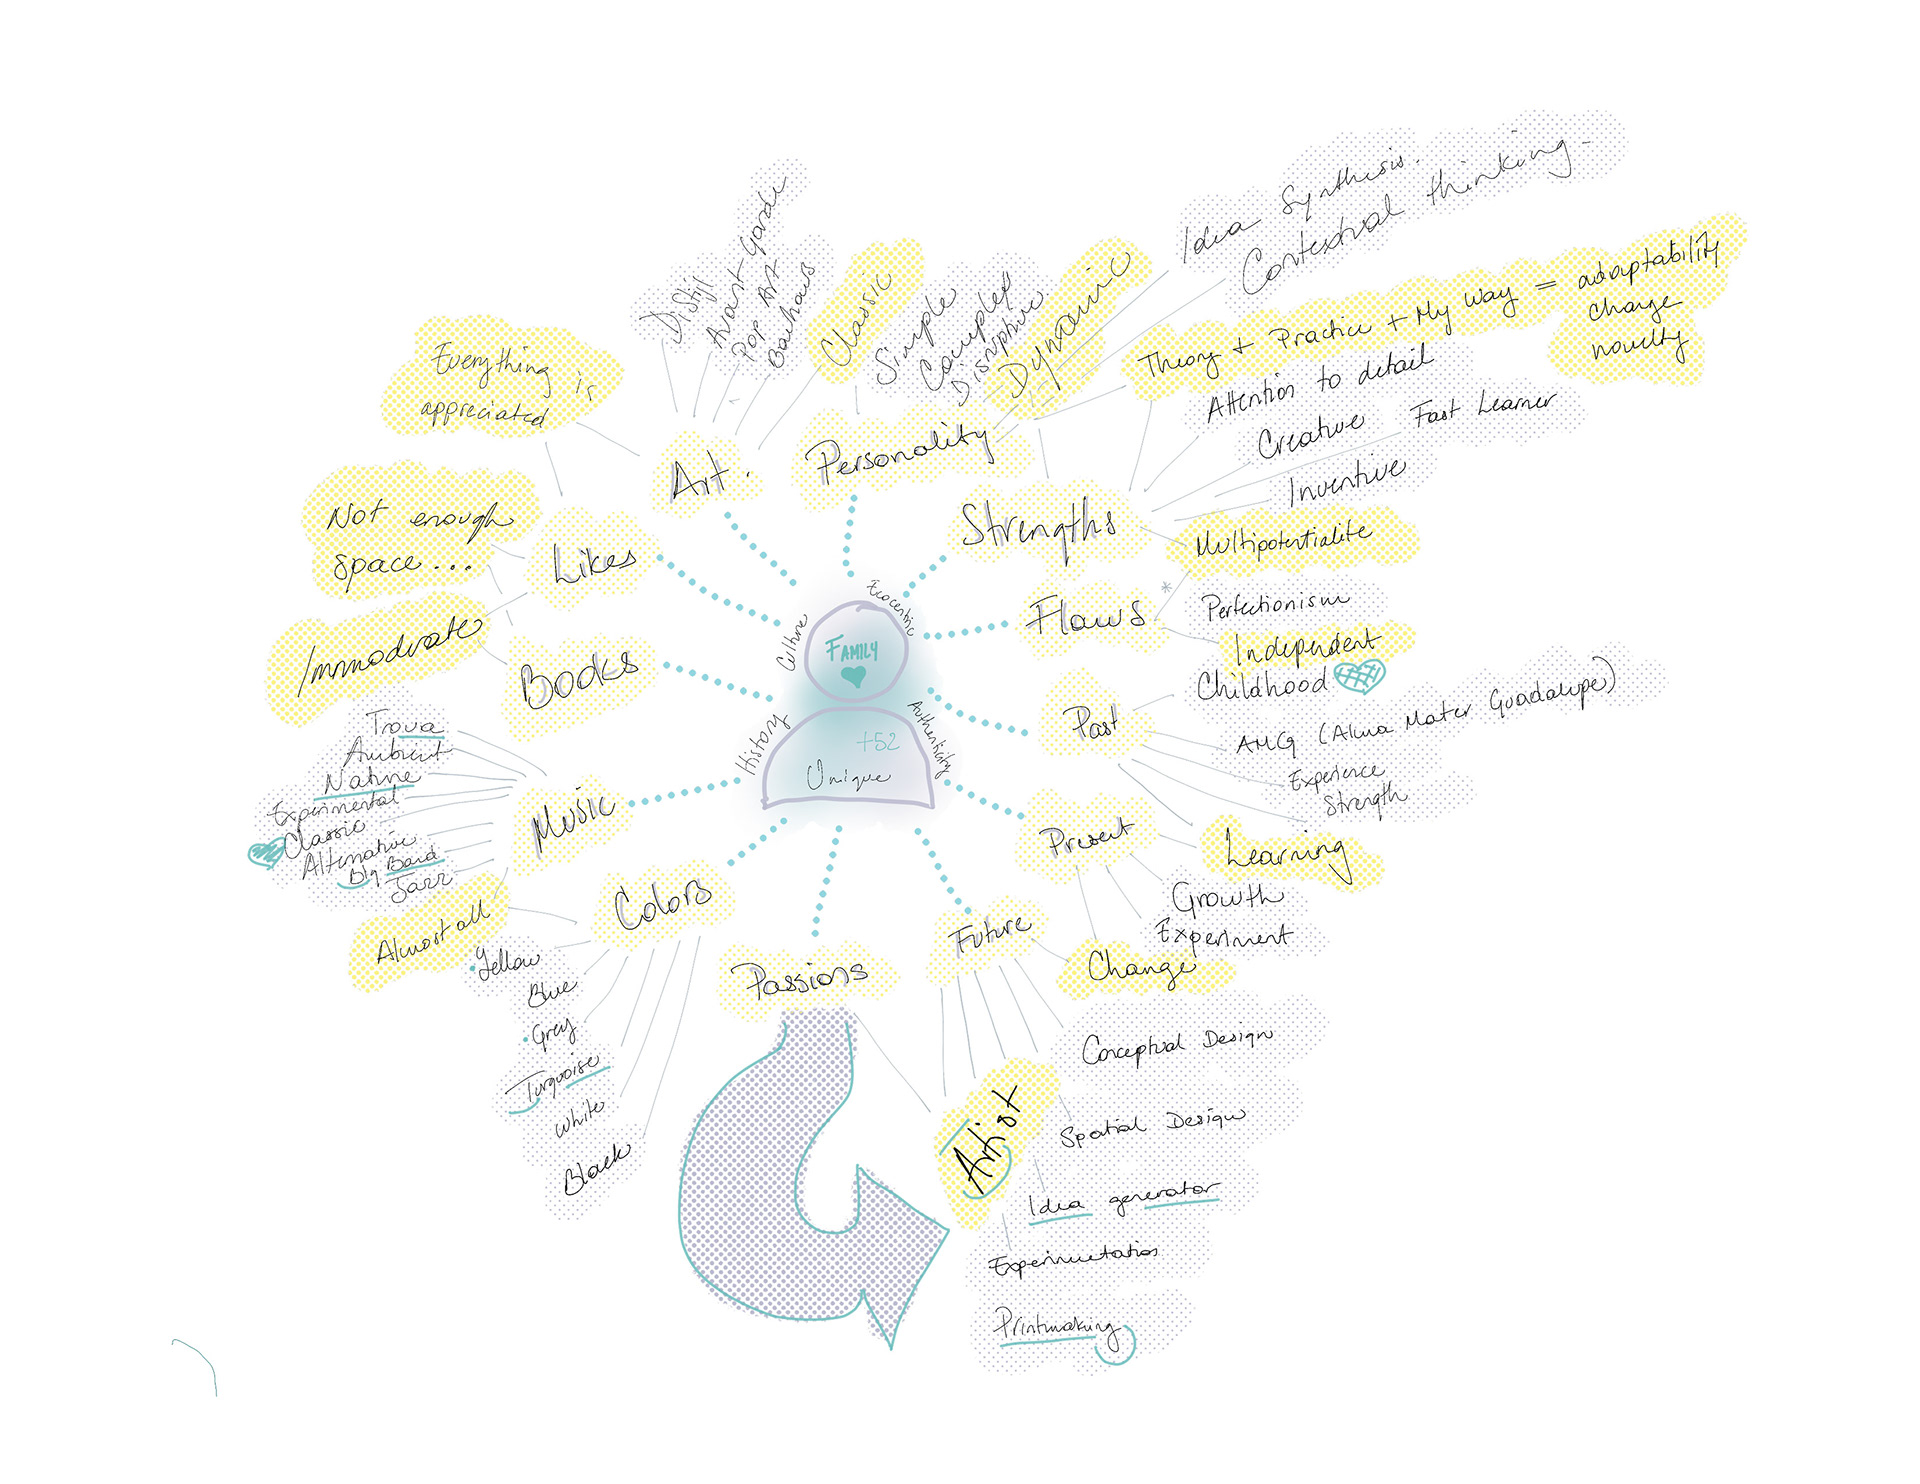 Idea Synthesis.
Contextual thinking.
Theory + Practice + My Way = adaptability
change
novelty
Attention to detail
Creative
Fast Learner
Inventive
Strengths
Multipotentialite
Personality
Simple
Complex
Disruptive
Dynamic
Classic
Distijl
Avant-Garde
Pop Art
Bauhaus
Art.
Everything is
appreciated
Likes
Not enough
space...
Immoderate
Books
Music
Trova
Ambient
Nature
Experimental
Classic
Alternative
Big Band
Jazz
Almost all
Colors
Yellow
Blue
Grey
Turquoise
White
Black
Passions
Future
Artist
Conceptual Design
Spatial Design
Idea generator
Experimentation
Printmaking
Present
Learning
Growth
Experiment
Change
Past
Childhood
AMG (Alma Mater Guadalupe)
Experience
Strength
Flaws
*
Perfectionism
Independent
Culture
Exocentric
FAMILY
History
Authenticity
+52
Unique